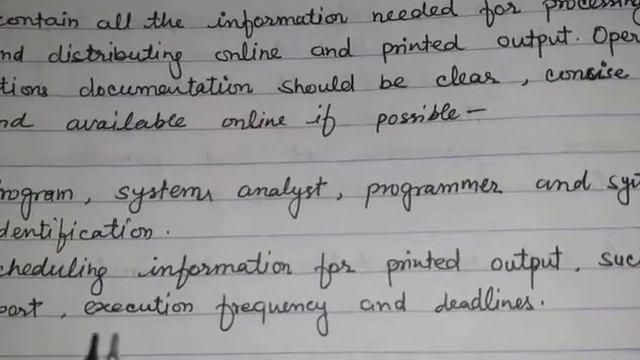 contain all the information needed for processing
nd distributing online and printed output. Oper
tions documentation should be clear, concise
nd available online if possible -
rogram, systems analyst, programmer and sys
dentification.
cheduling information for printed output, suc
port, execution frequency and deadlines.